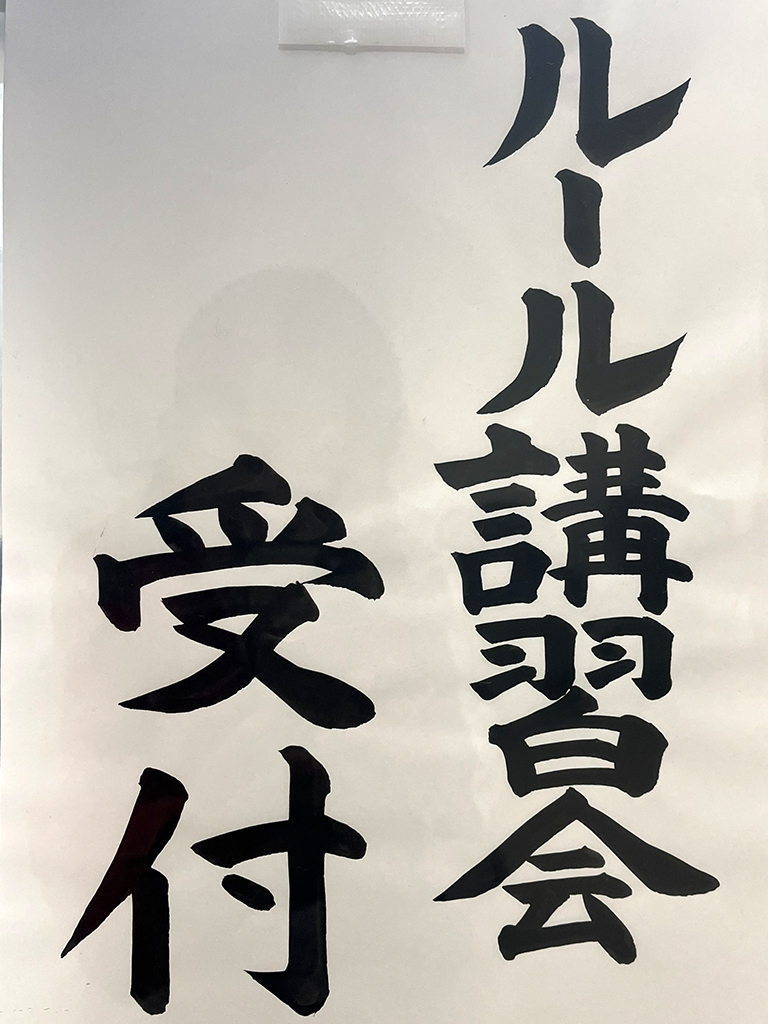 ルール講習会
受付